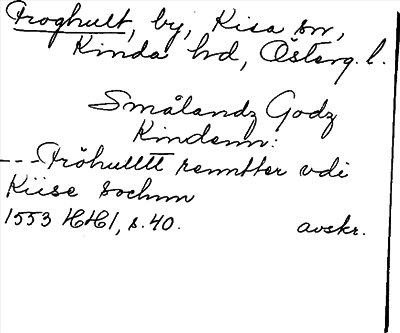 Froghult, by, Kisa sn,
Kinda hd, Österg. l.
Smålandz Godz
Kindenn:
---Fröhulltt renntter vdi
Kiise sochnn
1553 HH1, s. 40. avskr.